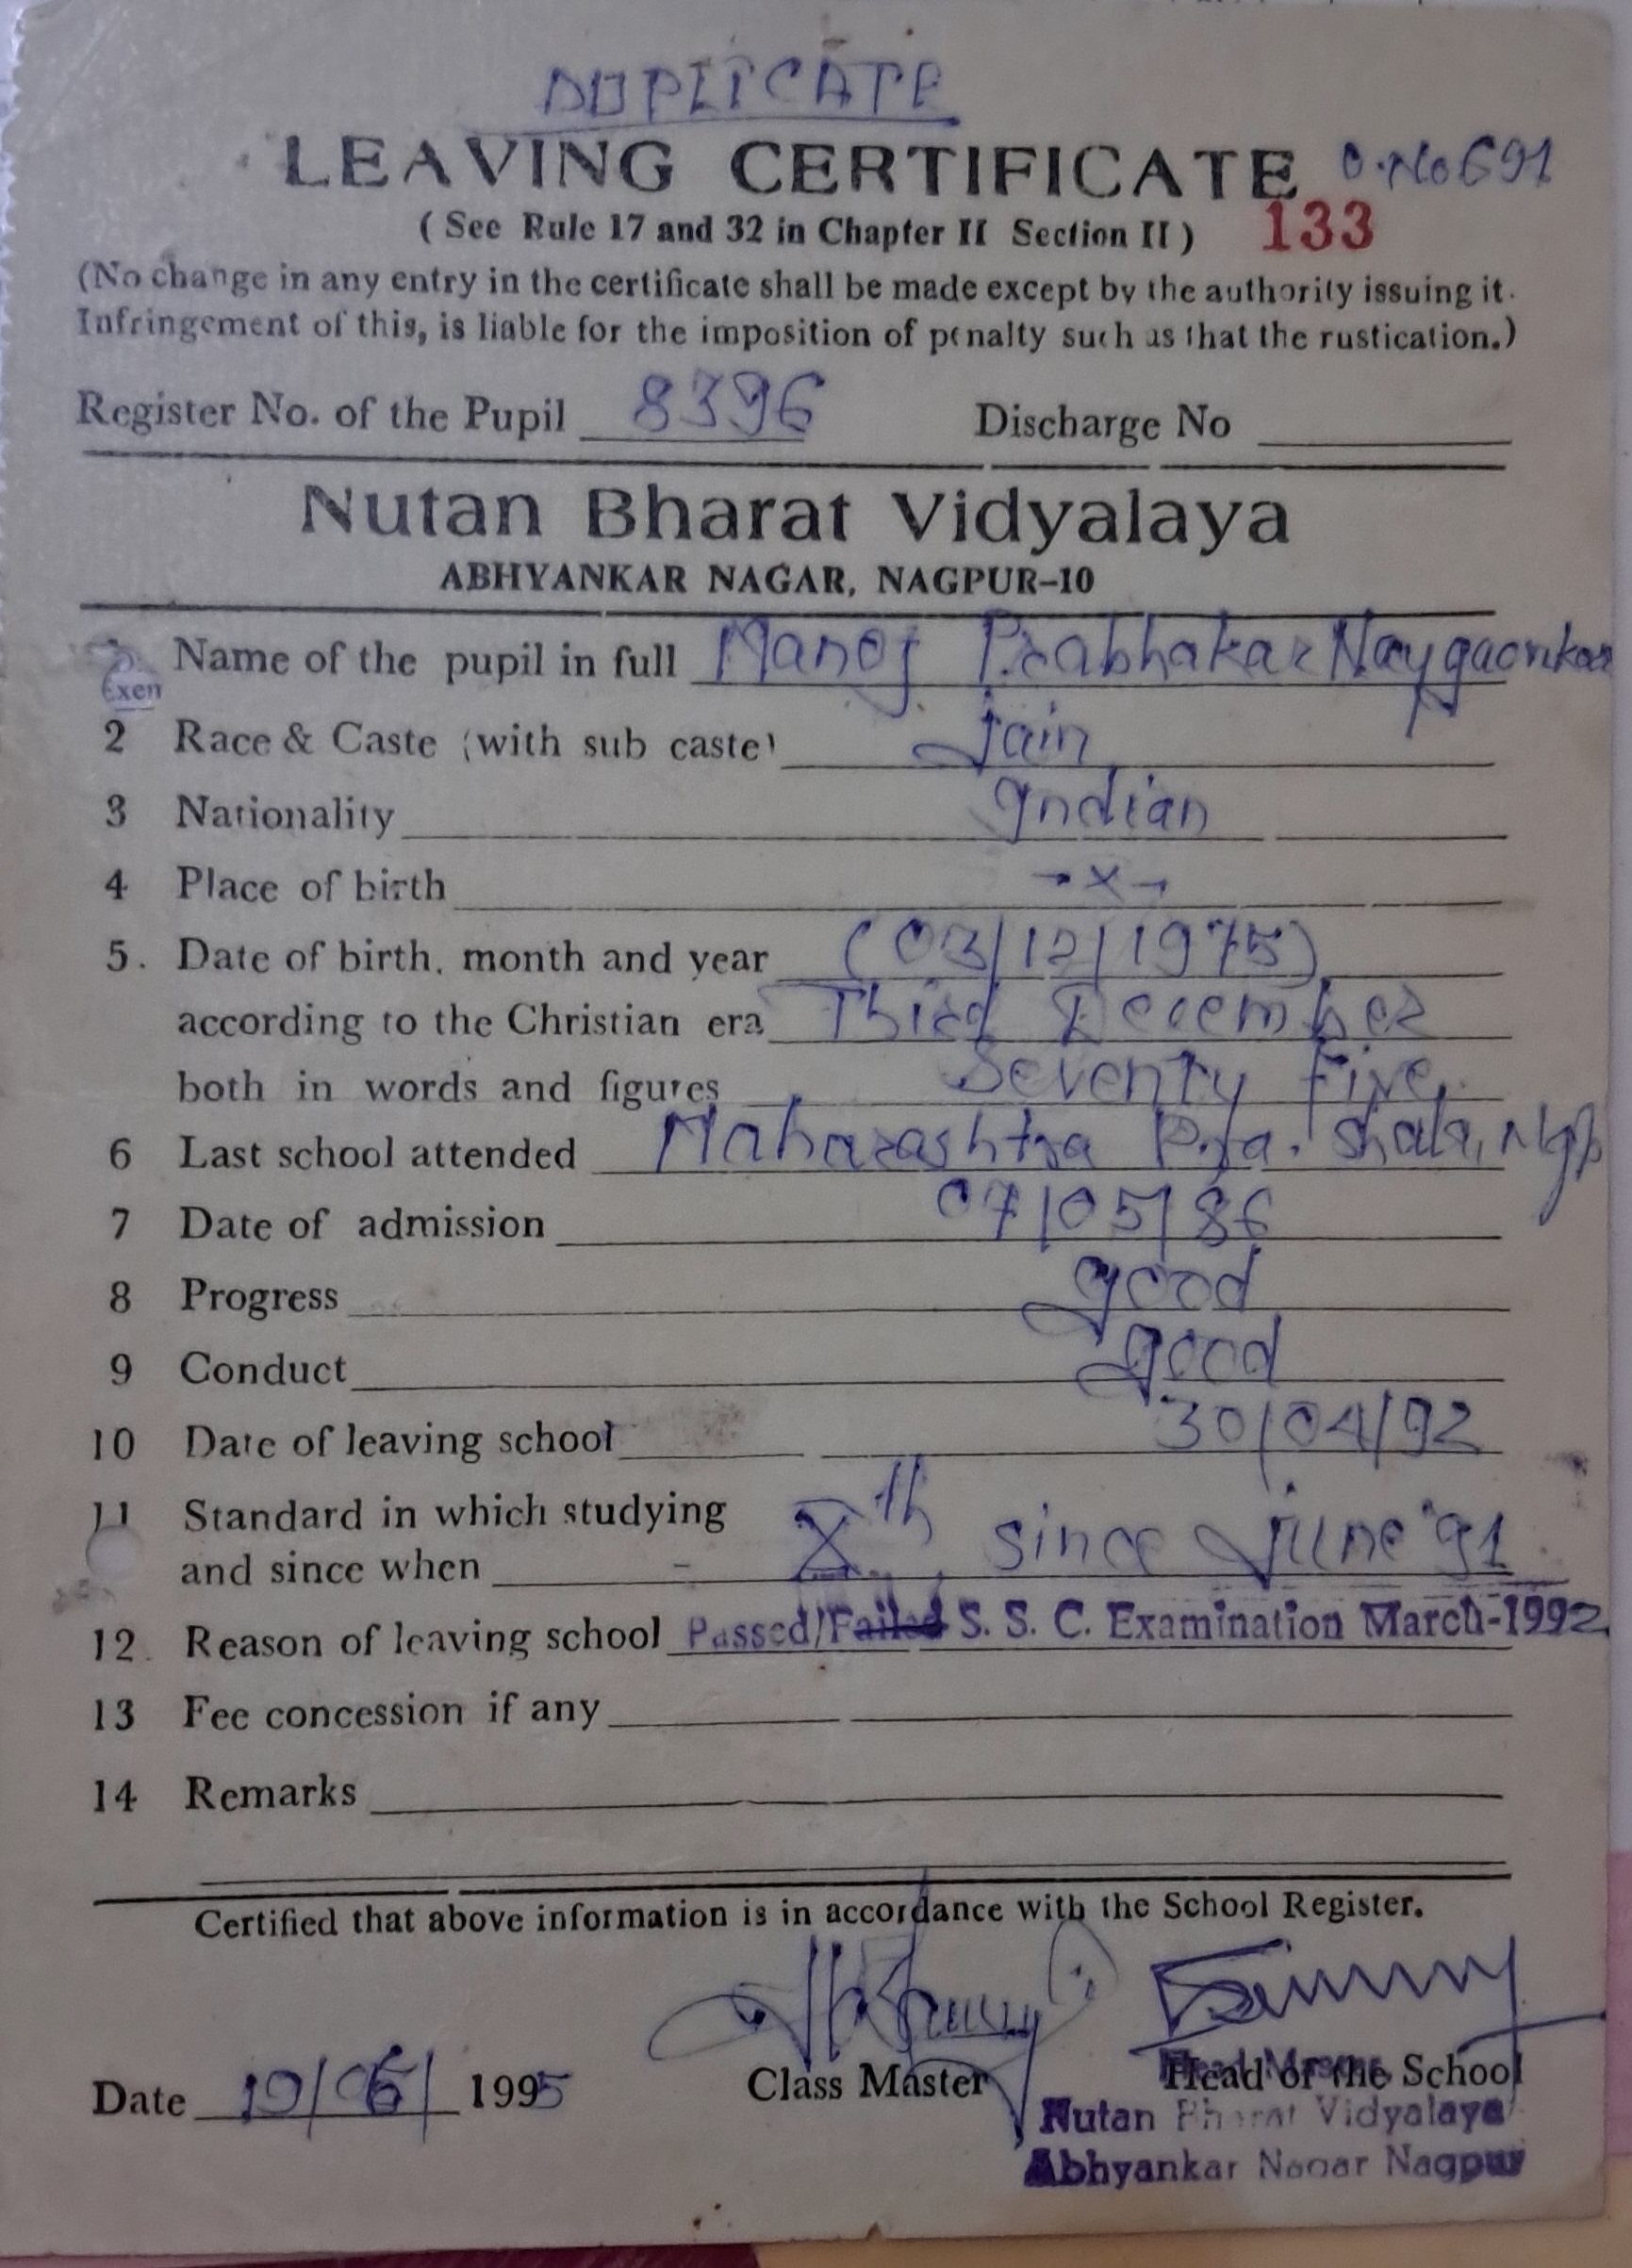 DUPLICATE
LEAVING CERTIFICATE O.No 691
( See Rule 17 and 32 in Chapter II Section II ) 133
(No change in any entry in the certificate shall be made except by the authority issuing it.
Infringement of this, is liable for the imposition of penalty such as that the rustication.)
Register No. of the Pupil 8396 Discharge No
Nutan Bharat Vidyalaya
ABHYANKAR NAGAR, NAGPUR-10
Exen
Name of the pupil in full Manoj Prabhakar Naygaonkar
2 Race & Caste (with sub caste) Jain
3 Nationality Indian
4 Place of birth -x-
5. Date of birth, month and year (03/12/1975)
according to the Christian era Third December
both in words and figures Seventy Five
6 Last school attended Maharashtra P. Shala, Ngp
7 Date of admission 07/05/86
8 Progress good
9 Conduct good
10 Date of leaving school 30/04/92
11 Standard in which studying
and since when - Xth since June '91
12. Reason of leaving school Passed/Failed S. S. C. Examination March-1992
13 Fee concession if any
14 Remarks
Certified that above information is in accordance with the School Register.
Date 19/06/ 1995 Class Master Head of the School
Head Master
Nutan Bharat Vidyalaya
Abhyankar Nagar Nagpur